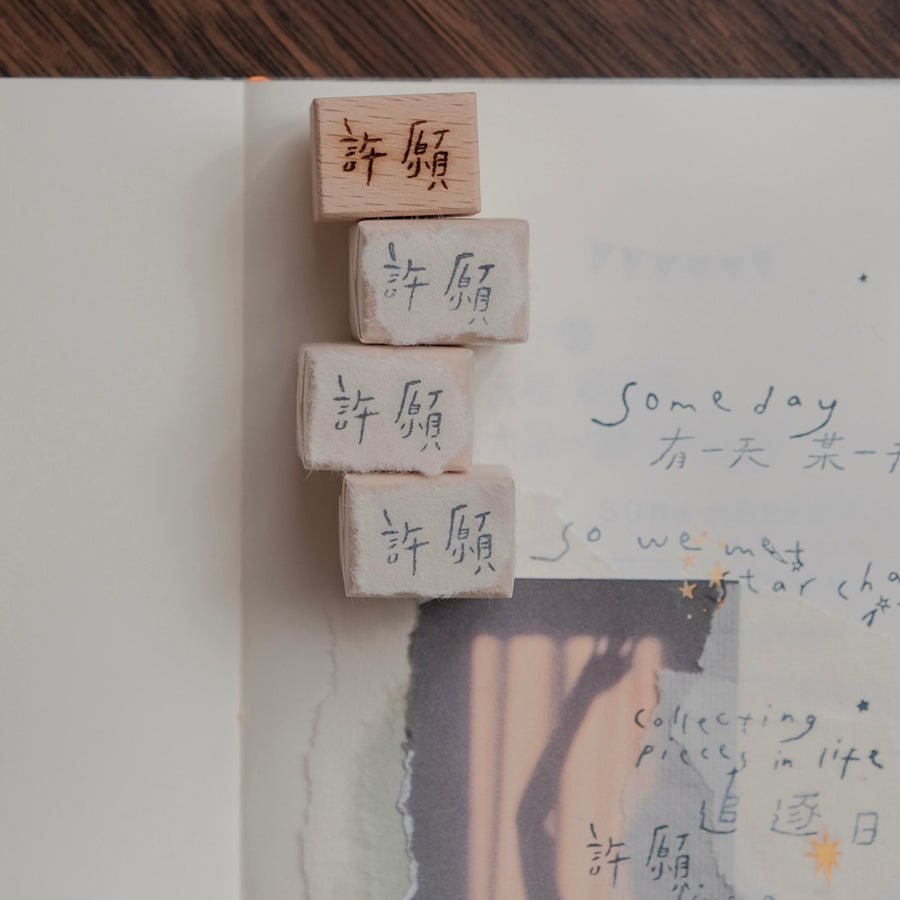 許願
許願
許願
許願
someday
有一天 某一天
so we met
star cha
collecting
pieces in life
追逐日
許願